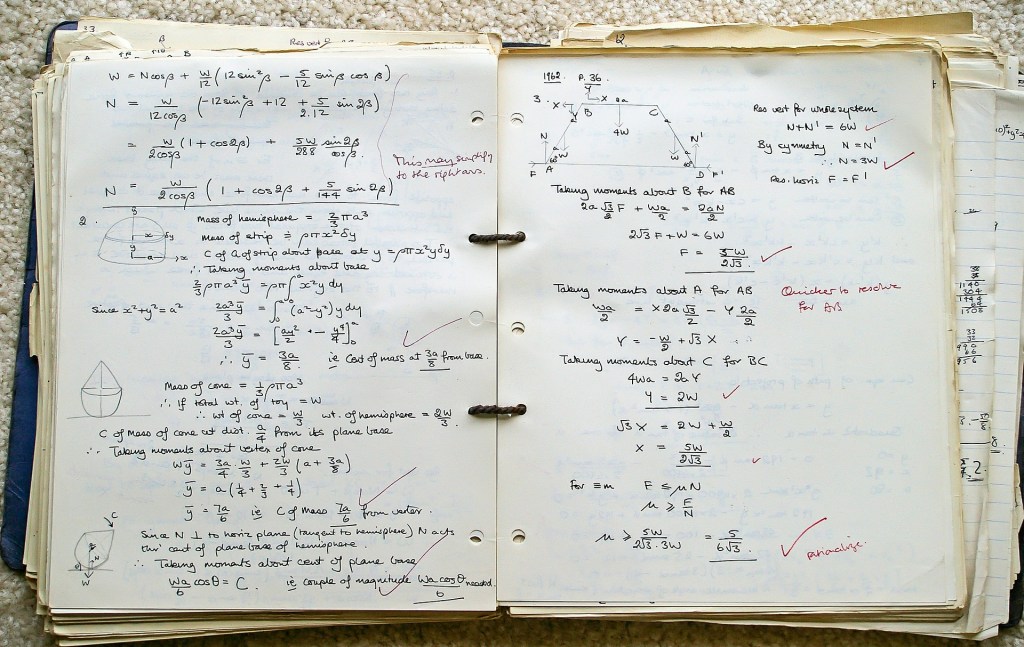 33
W = N cos β + W/12 (12 sin²β − 5/12 sin β cos β)
N = W/12 cos β (−12 sin²β + 12 + 5/2.12 sin 2β)
= W/2 cos β (1 + cos 2β) + 5W/288 sin 2β/cos β.
This may simplify
to the right ans.
N = W/2 cos β (1 + cos 2β + 5/144 sin 2β)
2.
Mass of hemisphere = 2/3 π a³
Mass of strip ≑ ρπx²δy
C of G of strip about base at y = ρπx²yδy
∴ Taking moments about base
2/3 ρπa³ȳ = ρπ∫₀ᵃ x²y dy
since x²+y² = a²
2a³ȳ/3 = ∫₀ᵃ (a²−y²) y dy
2a³ȳ/3 = [ay²/2 + − y⁴/4]ᵃ₀
∴ ȳ = 3a/8. ie Cent of mass at 3a/8 from base.
Mass of cone = 1/3 ρπa³
∴ If total wt. of toy = W
∴ wt of cone = W/3 wt. of hemisphere = 2W/3.
C of Mass of cone at dist. a/4 from its plane base
∴ Taking moments about vertex of cone
Wȳ = 3a/4 . W/3 + 2W/3 (a + 3a/8)
ȳ = a(1/4 + 2/3 + 1/4)
ȳ = 7a/6 ie C of Mass 7a/6 from vertex.
Since N ⊥ to horiz plane (tangent to hemisphere) N acts
thro' cent of plane base of hemisphere.
∴ Taking moments about cent of plane base
Wa/6 cos θ = C. ie couple of magnitude Wa cos θ/6 needed.
C
N
W
12.
1962. P. 36.
3.
Y
X
2a
X
Y
B
C
4W
N
W
W
N'
F
A
60°
60°
D
F'
Res vert for whole system
N+N' = 6W
By symmetry N = N'
∴ N = 3W
Res. horiz F = F'
Taking moments about B for AB
2a √3/2 F + Wa/2 = 2aN/2
2√3 F + W = 6W
F = 5W/2√3.
Taking moments about A for AB
Quicker to resolve
for AB
Wa/2 = X 2a √3/2 − Y 2a/2
Y = −W/2 + √3 X
Taking moments about C for BC
4Wa = 2aY
Y = 2W
√3 X = 2W + W/2
X = 5W/2√3
For ≡m F ≤ μN
μ ≥ F/N
μ ≥ 5W/2√3.3W = 5/6√3.
rationalize.